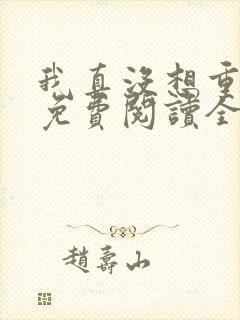 我真没想重
免費閱讀全
趙壽山